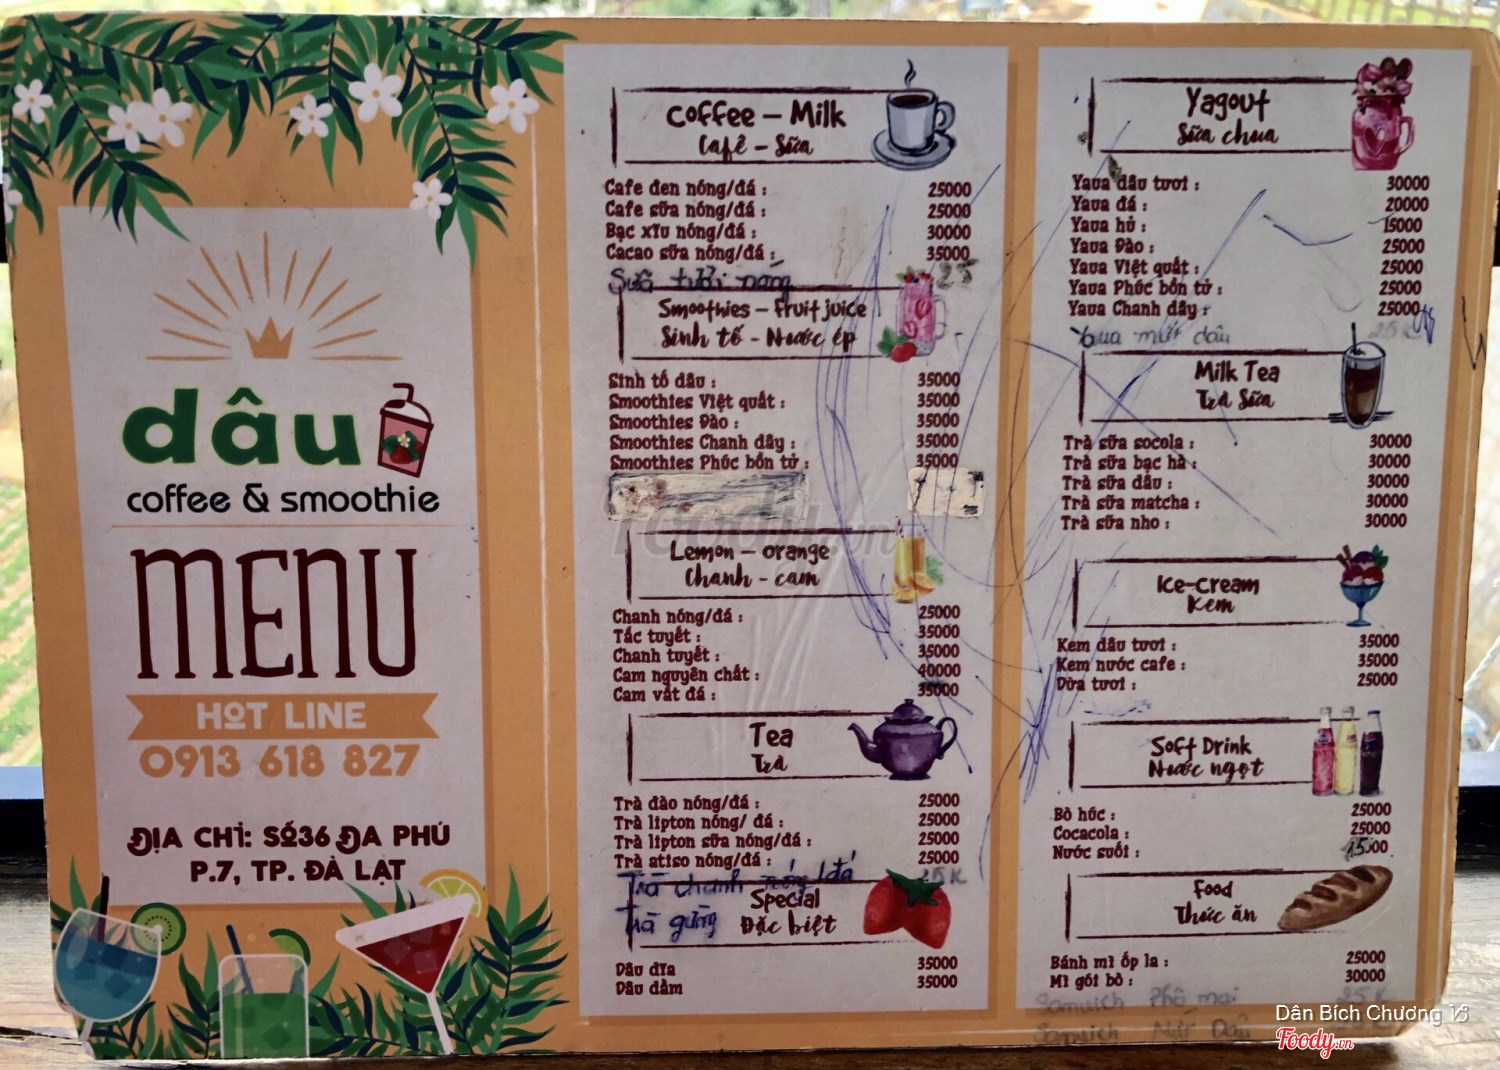 dâu
coffee & smoothie
MENU
HOT LINE
0913 618 827
ĐỊA CHỈ: SỐ36 ĐA PHÚ
P.7, TP. ĐÀ LẠT
Coffee – Milk
Cafê – Sữa
Cafe đen nóng/đá : 25000
Cafe sữa nóng/đá : 25000
Bạc xỉu nóng/đá : 30000
Cacao sữa nóng/đá : 35000
Sữa tươi nóng 25
Smoothies – Fruit juice
Sinh tố - Nước ép
Sinh tố dâu : 35000
Smoothies Việt quất : 35000
Smoothies Đào : 35000
Smoothies Chanh dây : 35000
Smoothies Phúc bồn tử : 35000
Lemon – orange
Chanh - cam
Chanh nóng/đá : 25000
Tắc tuyết : 35000
Chanh tuyết : 35000
Cam nguyên chất : 40000
Cam vắt đá : 35000
Tea
Trà
Trà đào nóng/đá : 25000
Trà lipton nóng/ đá : 25000
Trà lipton sữa nóng/đá : 25000
Trà atiso nóng/đá : 25000
Trà chanh nóng/đá 25K
Trà gừng
Special
Đặc biệt
Dâu dĩa 35000
Dâu dầm 35000
Yagout
Sữa chua
Yaua dâu tươi : 30000
Yaua đá : 20000
Yaua hủ : 15000
Yaua Đào : 25000
Yaua Việt quất : 25000
Yaua Phúc bồn tử : 25000
Yaua Chanh dây : 25000
Yaua mứt dâu 25K
Milk Tea
Trà Sữa
Trà sữa socola : 30000
Trà sữa bạc hà : 30000
Trà sữa dâu : 30000
Trà sữa matcha : 30000
Trà sữa nho : 30000
Ice-cream
Kem
Kem dâu tươi : 35000
Kem nước cafe : 35000
Dừa tươi : 25000
Soft Drink
Nước ngọt
Bò húc : 25000
Cocacola : 25000
Nước suối : 15000
Food
Thức ăn
Bánh mì ốp la : 25000
Mì gói bò : 30000
Samwich Phô mai 25K
Samwich Mứt Dâu
Dân Bích Chương 18
Foody.vn